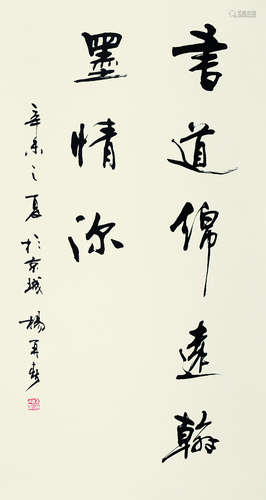 書道綿遠翰
墨情深
辛未之夏於京城楊再春